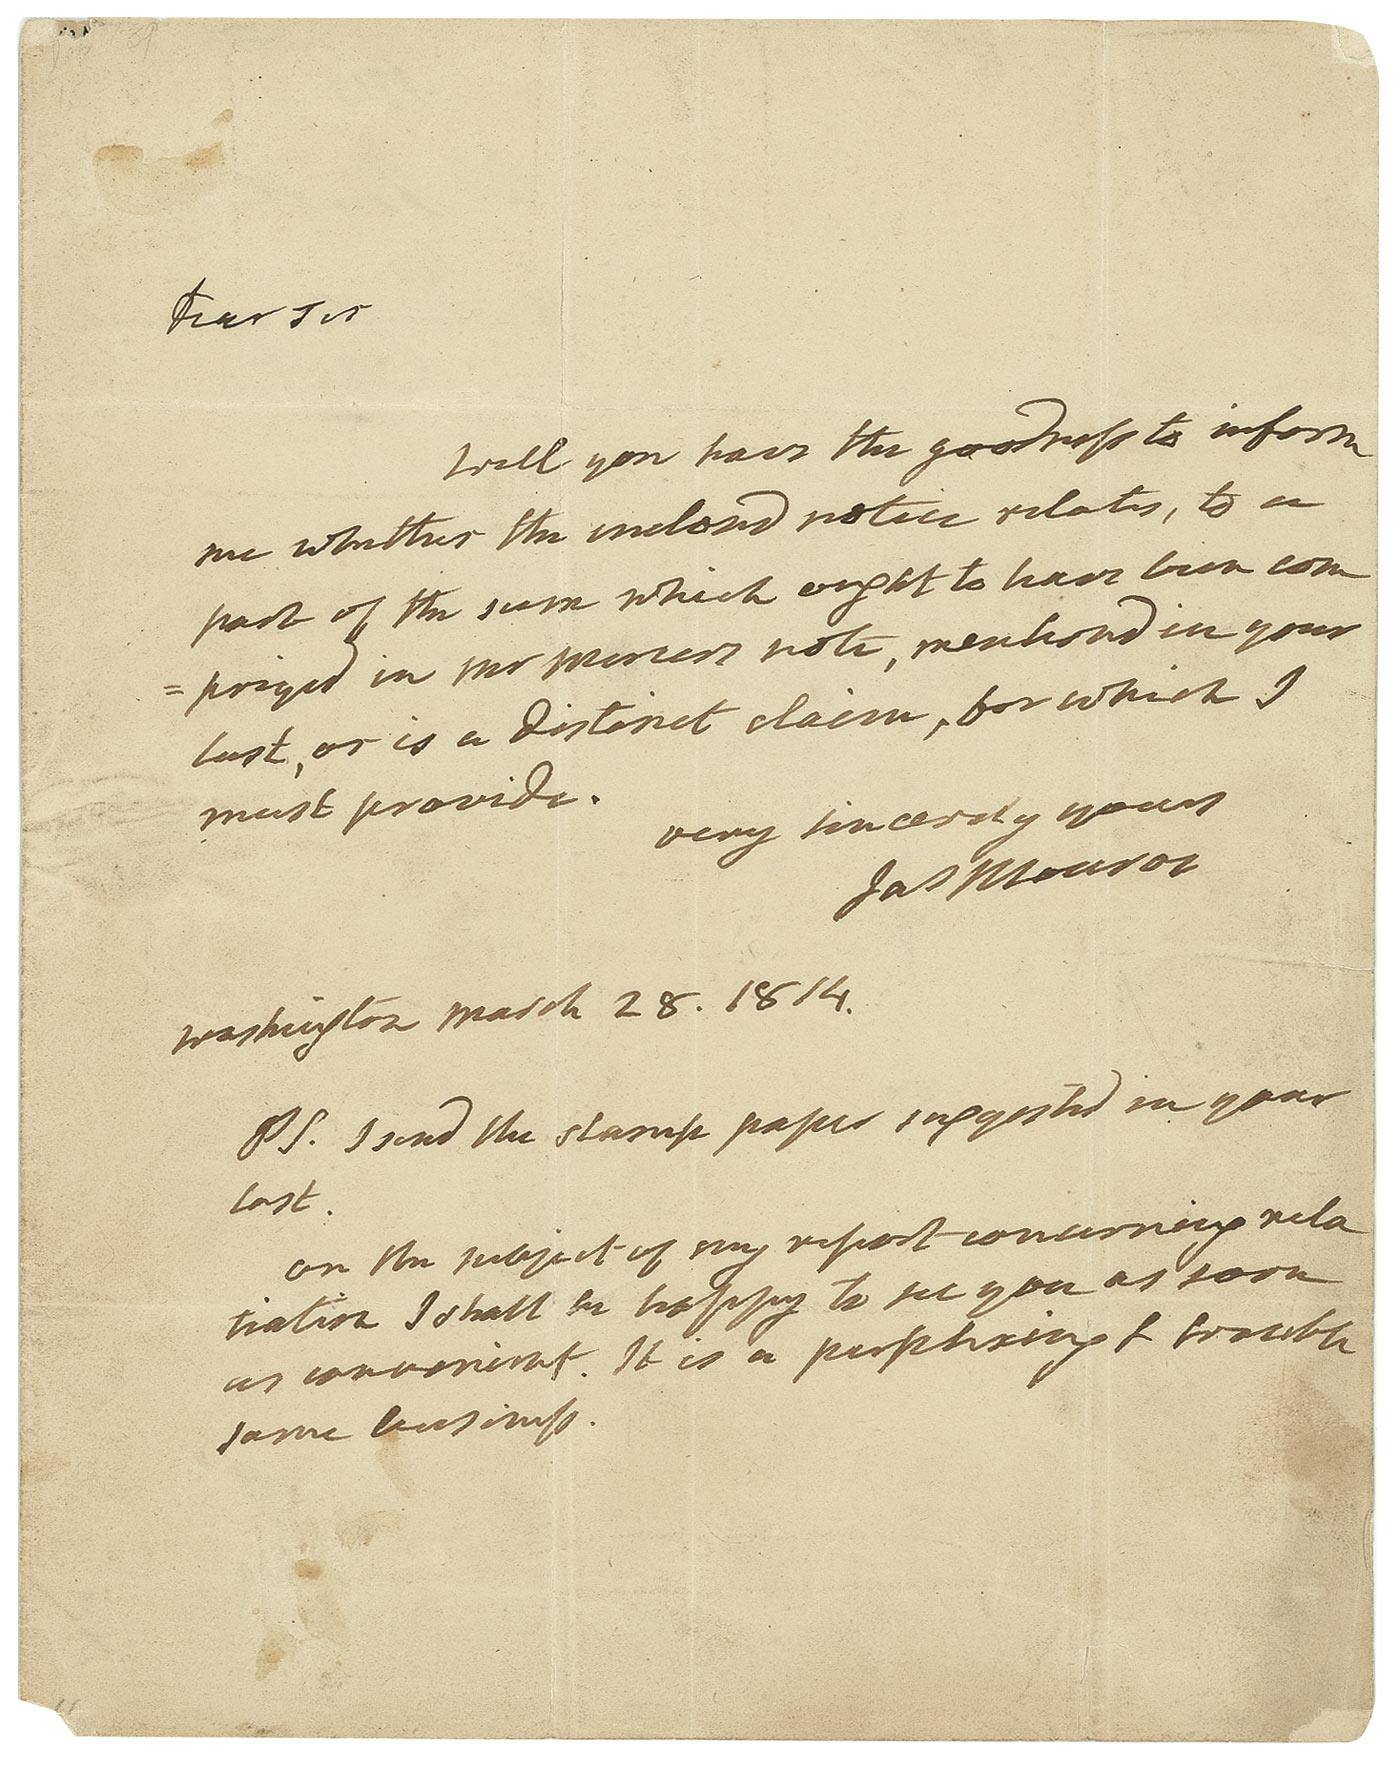 Dear Sir
Will you have the goodness to inform
me whether the inclosed notice relates, to a
part of the sum which ought to have been com
=prized in Mr Mercers note, mentiond in your
last, or is a distinct claim, for which I
must provide.
very sincerely yours
Jas Monroe
Washington March 28. 1814.
PS. I send the stamp paper suggested in your
last.
on the subject of my report concerning reta
liation I shall be happy to see you as soon
as convenient. It is a perplexing & trouble
some business.